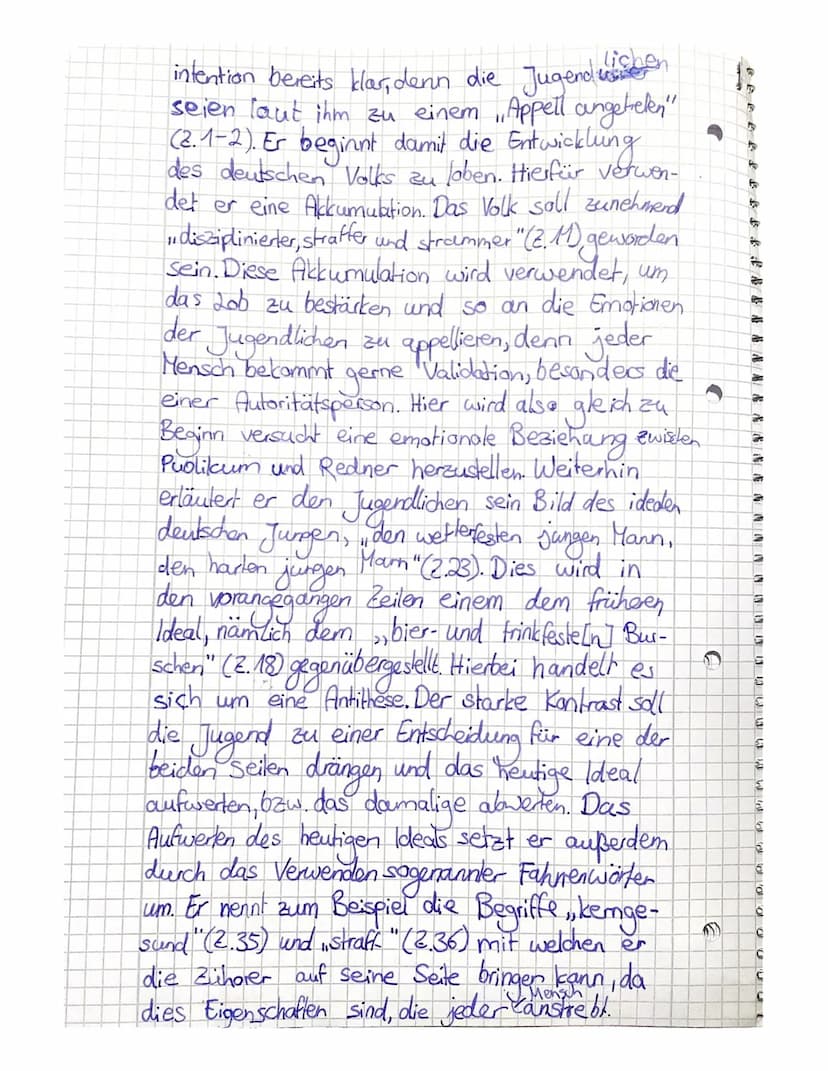 intention bereits klar, denn die Jugendlichen
seien laut ihm zu einem „Appell angetreten"
(Z.1-2). Er beginnt damit die Entwicklung
des deutschen Volks zu loben. Hierfür verwen-
det er eine Akkumulation. Das Volk soll zunehmend
„disziplinierter, straffer und strammer" (Z.11) geworden
sein. Diese Akkumulation wird verwendet, um
das Lob zu bestärken und so an die Emotionen
der Jugendlichen zu appellieren, denn jeder
Mensch bekommt gerne Validation, besonders die
einer Autoritätsperson. Hier wird also gleich zu
Beginn versucht eine emotionale Beziehung zwischen
Publikum und Redner herzustellen. Weiterhin
erläutert er den Jugendlichen sein Bild des idealen
deutschen Jungen, „den wetterfesten jungen Mann,
den harten jungen Mann" (Z.23). Dies wird in
den vorangegangen Zeilen einem dem früheren
Ideal, nämlich dem „bier- und trinkfeste[n] Bur-
schen" (Z.18) gegenübergestellt. Hierbei handelt es
sich um eine Antithese. Der starke Kontrast soll
die Jugend zu einer Entscheidung für eine der
beiden Seiten drängen und das heutige Ideal
aufwerten, bzw. das damalige abwerten. Das
Aufwerten des heutigen Ideals setzt er außerdem
durch das Verwenden sogenannter Fahnenwörter
um. Er nennt zum Beispiel die Begriffe „kernge-
sund" (Z.35) und „straff" (Z.36) mit welchen er
die Zuhörer auf seine Seite bringen kann, da
dies Eigenschaften sind, die jeder Mensch anstrebt.